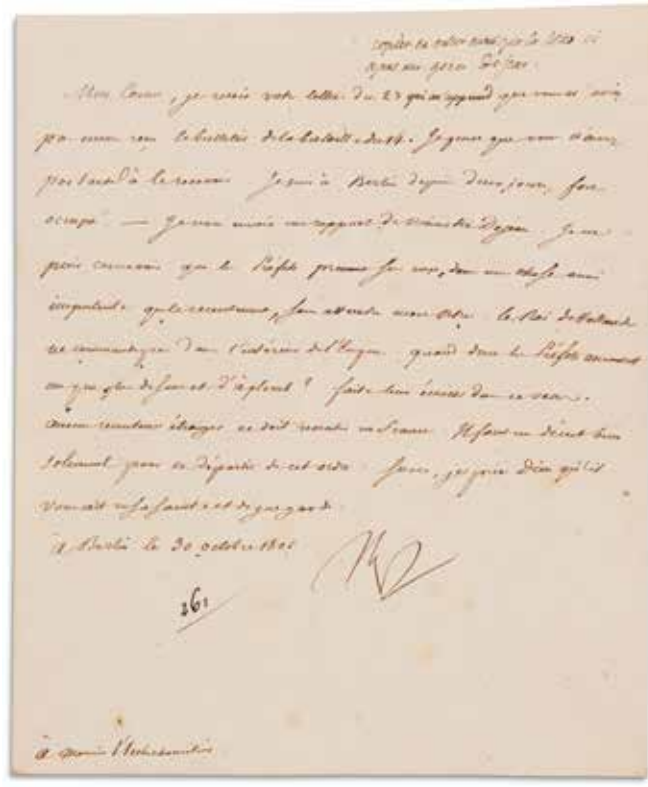 Mon Cousin, je reçois votre lettre du 23 qui m'apprend que vous n'avez
pas encore reçu le bulletin de la bataille du 14. Je pense que vous n'aurez
pas tardé à le recevoir. Je suis à Berlin depuis deux jours, fort
occupé — Je vous envoie un rapport du ministre Dejean. Je ne
puis concevoir que le Préfet prenne sur soi, dans une chose aussi
importante que le recrutement, sans attendre mon ordre. le Roi de Hollande
ne commande pas dans l'intérieur de l'Empire. quand donc les Préfets auront
un peu plus de sens et d'aplomb ? faites leur écrire dans ce sens.
aucun recruteur étranger ne doit recruter en France. Il faut un décret bien
solemnel pour se départir de cet ordre. Sur ce, je prie Dieu qu'il
vous ait en sa sainte et digne garde
à Berlin le 30 octobre 1806
261
à Monsieur l'Archichancelier